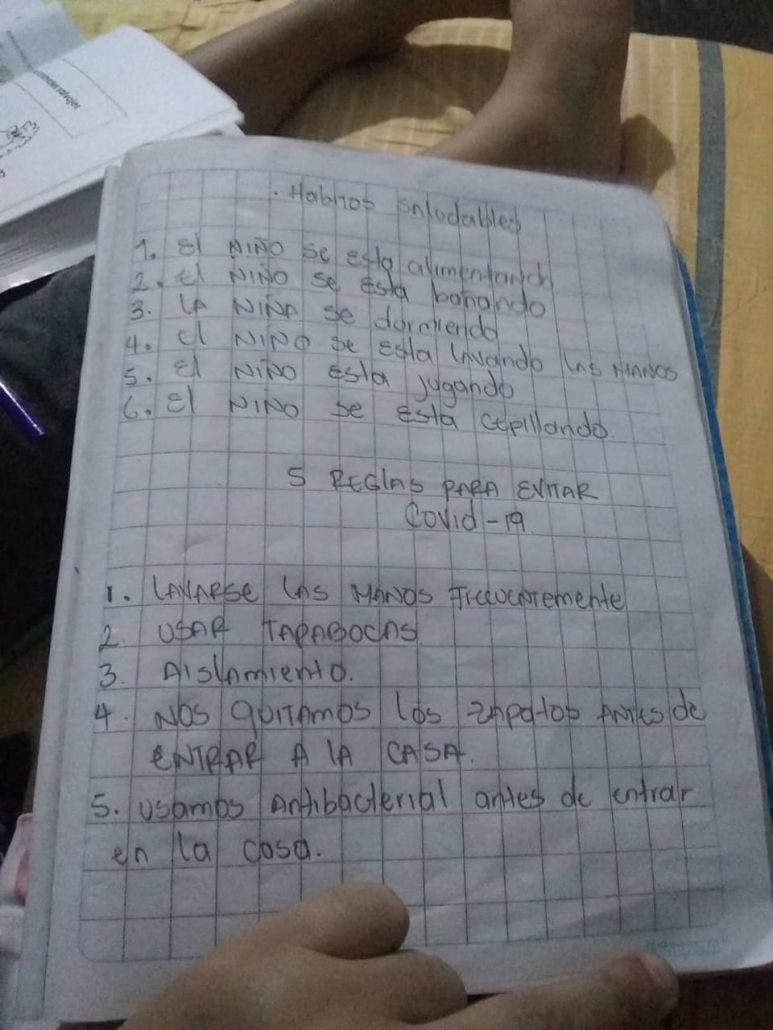 . Habitos saludables
1. El NIÑO se esta alimentando
2. El NIÑO se esta bañando
3. LA NIÑA se dormiendo
4. El NIÑO se esta lavando las MANOS
5. El NIÑO esta jugando
6. El NIÑO se esta cepillando.
5 REGLAS PARA EVITAR
Covid-19.
1. LAVARSE LAS MANOS frecuentemente
2. USAR TAPABOCAS.
3. Aislamiento.
4. NOS QUITAMOS los zapatos ANTES de
ENTRAR A LA CASA.
5. Usamos Antibacterial antes de entrar
en la casa.